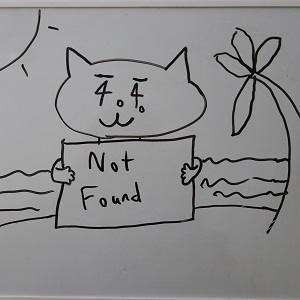 4 o 4
Not
Found